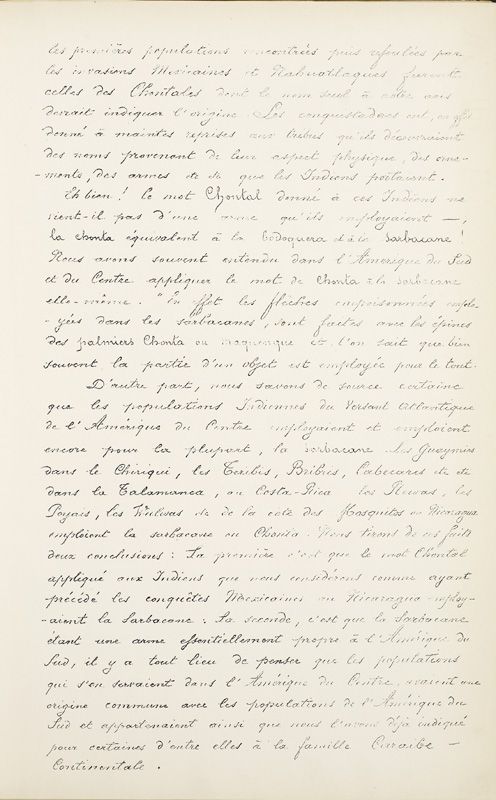 les premières populations rencontrées puis refoulées par
les invasions Mexicaines et Nahuatlaques furent
celles des Chontales dont le nom seul à notre avis
devrait indiquer l'origine. Les conquistadores ont, en effet
donné à maintes reprises aux tribus qu'ils découvraient
des noms provenant de leur aspect physique, des orne-
-ments, des armes etc etc que les Indiens portaient.
Eh bien ! le mot Chontal donné à ces Indiens ne
vient-il pas d'une arme qu'ils employaient —,
la chonta équivalent à la bodoquera et à la sarbacane !
Nous avons souvent entendu dans l'Amérique du Sud
et du Centre appliquer le mot de chonta à la sarbacane
elle-même. "En effet les flèches empoisonnées emplo-
-yées dans les sarbacanes, sont faites avec les épines
des palmiers Chonta ou et l'on sait que bien
souvent la partie d'un objet est employée pour le tout.
D'autre part, nous savons de source certaine
que les populations Indiennes du Versant Atlantique
de l'Amérique du Centre employaient et emploient
encore pour la plupart, la sarbacane. Les Guaymies
dans le Chiriqui, les Teribis, Bribris, Cabecares etc etc
dans la Talamanca, au Costa-Rica les les
Poyais, les Wulwas etc de la côte des Mosquitos au Nicaragua
emploient la sarbacane ou Chonta. Nous tirons de ces faits
deux conclusions : La première c'est que le mot Chontal
appliqué aux Indiens que nous considérons comme ayant
précédé les conquêtes Mexicaines au Nicaragua employ-
-aient la Sarbacane : La seconde, c'est que la Sarbacane
étant une arme essentiellement propre à l'Amérique du
Sud, il y a tout lieu de penser que les populations
qui s'en servaient dans l'Amérique du Centre, avaient une
origine commune avec les populations de l'Amérique du
Sud et appartenaient ainsi que nous l'avons déjà indiqué
pour certaines d'entre elles à la famille Caraïbe —
Continentale .